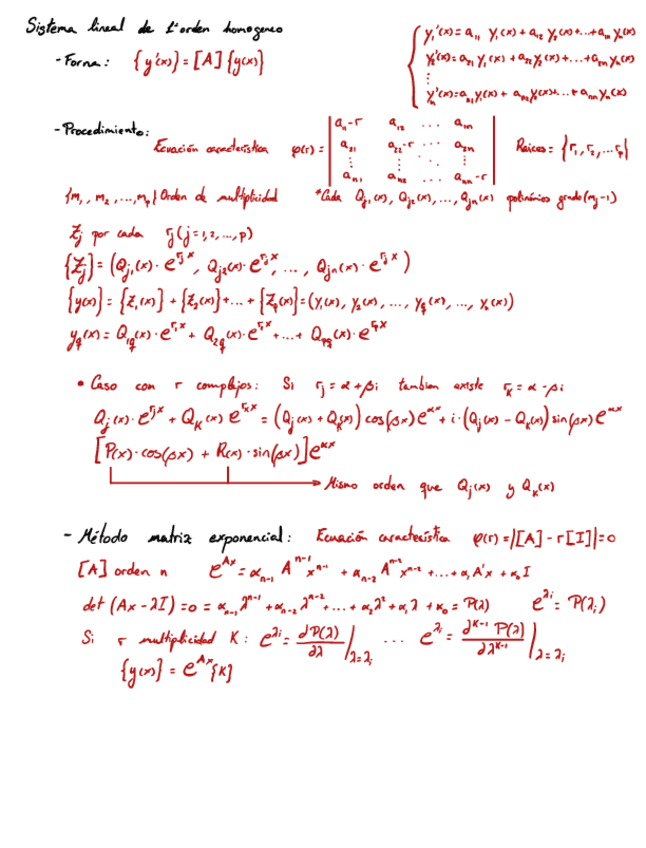 Sistema lineal de 1er orden homogeneo
- Forma: {y'(x)} = [A] {y(x)}
y₁'(x) = a₁₁ y₁(x) + a₁₂ y₂(x) + ... + a₁ₙ yₙ(x)
y₂'(x) = a₂₁ y₁(x) + a₂₂ y₂(x) + ... + a₂ₙ yₙ(x)
⋮
yₙ'(x) = aₙ₁ y₁(x) + aₙ₂ y₂(x) + ... + aₙₙ yₙ(x)
- Procedimiento:
Ecuación característica φ(r) = | a₁₁-r a₁₂ ... a₁ₙ |
| a₂₁ a₂₂-r ... a₂ₙ |
| ⋮ ⋮ ⋱ ⋮ |
| aₙ₁ aₙ₂ ... aₙₙ-r |
Raices = {r₁, r₂, ... rₚ}
{m₁, m₂, ..., mₚ} Orden de multiplicidad *Cada Qⱼ₁(x), Qⱼ₂(x), ..., Qⱼₙ(x) polinómios grado (mⱼ-1)
Zⱼ por cada rⱼ (j=1,2,...,p)
{Zⱼ} = (Qⱼ₁(x)·e^{rⱼx}, Qⱼ₂(x)·e^{rⱼx}, ..., Qⱼₙ(x)·e^{rⱼx})
{y(x)} = {Z₁(x)} + {Z₂(x)} + ... + {Zₚ(x)} = (y₁(x), y₂(x), ..., y_q(x), ..., yₙ(x))
y_q(x) = Q_{1q}(x)·e^{r₁x} + Q_{2q}(x)·e^{r₂x} + ... + Q_{pq}(x)·e^{rₚx}
• Caso con r complejos: Si rⱼ = α + βi tambien existe rₖ = α - βi
Qⱼ(x)·e^{rⱼx} + Qₖ(x) e^{rₖx} = (Qⱼ(x) + Qₖ(x)) cos(βx) e^{αx} + i·(Qⱼ(x) - Qₖ(x)) sin(βx) e^{αx}
[P(x)·cos(βx) + R(x)·sin(βx)] e^{αx}
Mismo orden que Qⱼ(x) y Qₖ(x)
- Método matriz exponencial: Ecuación característica φ(r) = |[A] - r[I]| = 0
[A] orden n e^{Ax} = αₙ₋₁ Aⁿ⁻¹ xⁿ⁻¹ + αₙ₋₂ Aⁿ⁻² xⁿ⁻² + ... + α₁ A'x + α₀ I
det (Ax - λI) = 0 = αₙ₋₁ λⁿ⁻¹ + αₙ₋₂ λⁿ⁻² + ... + α₂ λ² + α₁ λ + α₀ = P(λ) e^{λᵢ} = P(λᵢ)
Si r multiplicidad K: e^{λᵢ} = ∂P(λ)/∂λ |_{λ=λᵢ} ... e^{λᵢ} = ∂^{K-1} P(λ)/∂λ^{K-1} |_{λ=λᵢ}
{y(x)} = e^{Ax} {K}